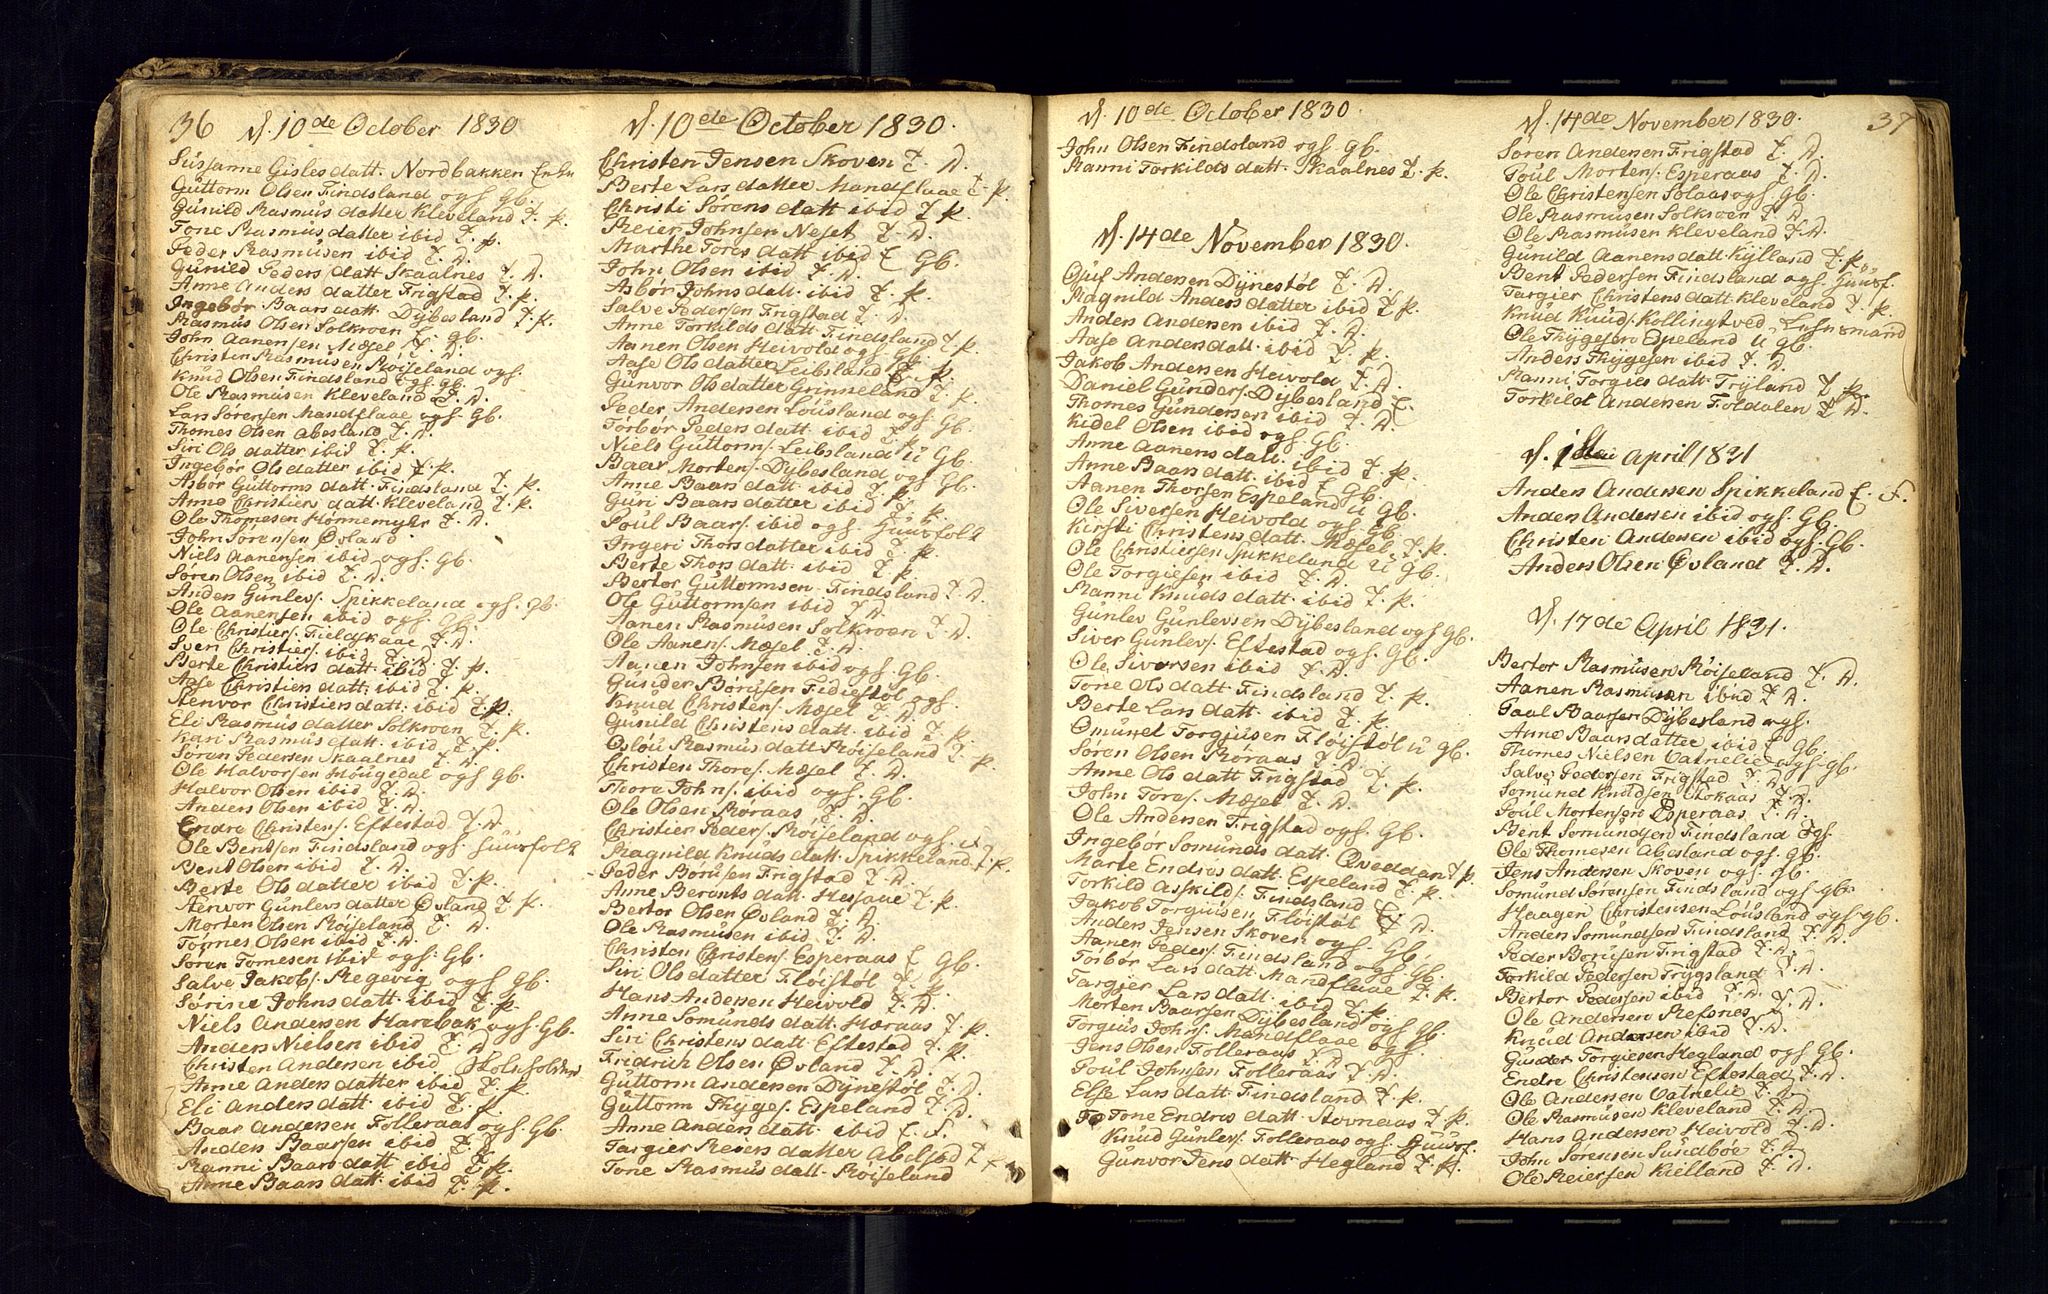 36 d. 10de October 1830
Susanne Gislesdatt. Nordbakken Enke
Guttorm Olsen Findsland ogs. Gb.
Gunild Rasmusdatter Kleveland T. p.
Tone Rasmusdatter ibid T. p.
Peder Rasmusen ibid T. D.
Gunild Pedersdatt Skaalnes T. D.
Anne Andersdatter Frigstad T. p.
Ingebor Baarsdatt. Dybesland T. p.
Rasmus Olsen Solkroen E. Gb.
John Aanensen Mæsel T. D.
Christen Rasmusen Røiseland ogs.
Knud Olsen Findsland ogs. gb.
Ole Rasmusen Kleveland T. D.
Lars Sørensen Mandflaae ogs. Gb.
Thomes Olsen Abesland T. D.
Siri Olsdatter ibid T. p.
Ingebor Olsdatter ibid T. p.
Asbor Guttormsdatt. Findsland T. p.
Anne Christiensdatt. Kleveland T. p.
Ole Thomesen Hønnemyhr T. D.
John Sørensen Øvland
Niels Aanensen ibid ogs. Gb.
Søren Olsen ibid T. D.
Anders Gunlevs. Spikkeland ogs. gb.
Ole Aanensen ibid ogs. Gb.
Ole Christiers. Fieldskaae T. D.
Sven Christiers. ibid T. D.
Berte Christiersdatt. ibid T. p.
Aase Christiersdatt. ibid T. p.
Stenvor Christiersdatt. ibid T. p.
Eli Rasmusdatter Solkroen T. p.
Kari Rasmusdatt. ibid T. p.
Søren Pedersen Skaalnes T. D.
Ole Halvorsen Hougedal ogs Gb.
Halvor Olsen ibid T. D.
Anders Olsen ibid T. D.
Endre Christens. Eftestad T. D.
Ole Bentsen Findsland ogs. Huusfolk
Bent Olsen ibid T. D.
Berte Olsdatter ibid T. p.
Stenvor Gunlevsdatter Øvland T. p.
Morten Olsen Røiseland T. D.
Tønnes Olsen ibid T. D.
Søren Tomesen ibid ogs. Gb.
Salve Jakobs. Regevig ogs Gb.
Sørine Johnsdatt. ibid T. p.
Niels Andersen Harebak ogs. Gb.
Anders Nielsen ibid T. D.
Christen Andersen ibid Skoleholder
Anne Andersdatter ibid T. p.
Eli Andersdatt. ibid T. p.
Baar Andersen Folleraas ogs. Gb.
Anders Baarsen ibid T. D.
Ranni Baarsdatt. ibid T. p.
Anne Baarsdatt. ibid T. p.
d. 10de October 1830.
Christen Jensen Skoven T. D.
Berte Larsdatter Mandflaae T. p.
Christi Sørensdatt. ibid T. p.
Reier Johnsen Neset T. D.
Marthe Toresdatt. ibid E. Gb.
John Olsen ibid T. D.
Asbor Johnsdatt. ibid T. p.
Salve Pedersen Frigstad T. D.
Anne Torkildsdatt. Findsland T. p.
Aanen Olsen Heivold ogs. Gb.
Aase Olsdatter Leibsland T. p.
Gunvor Olsdatter Grinneland T. p.
Peder Andersen Lousland ogs. Gb.
Torbor Pedersdatt. ibid T. p.
Niels Guttorms. Leibsland U Gb.
Baar Mortens. Dybesland ogs. Gb.
Anne Baarsdatt. ibid T. p.
Guri Baarsdatter ibid T. p.
Poul Baars. ibid ogs. Huusfolk
Ingeri Thorsdatter ibid T. p.
Berte Thorsdatt. ibid T. p.
Bertor Guttormsen Findsland T. D.
Ole Guttormsen ibid T. D.
Aanen Rasmusen Solkroen T. D.
Ole Aanens. Mæsel T. D.
Aanen Johnsen ibid ogs. Gb.
Gusider Børusen Fidiestøl ogs.
Knud Christens. Mæsel T. D.
Gunild Christensdatt. ibid T. p.
Oslou Rasmusdatt. Røiseland T. p.
Christen Thores. Mæsel T. D.
Thore Johns. ibid ogs. Gb.
Ole Olsen Røraas T. D.
Christier Peders. Røiseland ogs.
Ragnild Knudsdatt. Spikkeland T. p.
Peder Børusen Frigstad T. D.
Anne Berantsdatt. Hessaae T. p.
Bertor Olsen Øvland T. D.
Ole Rasmusen ibid T. D.
Christen Christens. Esperaas E Gb.
Siri Olsdatter Fløistøl T. p.
Hans Andersen Heivold T. D.
Anne Somundsdatt. Hæraas T. p.
Siri Christensdatt. Eftestad T. p.
Fridrich Olsen Øvland T. D.
Guttorm Andersen Dynestøl T. D.
Guttorm Thyges. Espeland T. D.
Anne Andersdatt. ibid E. F.
Targier Reiersdatter Abelstad T
Tone Rasmusdatt. Røiseland
d. 10de October 1830.
John Olsen Findsland ogs. Gb.
Ranni Torkildsdatt. Skaalnes T. p.
d. 14de November 1830.
Ojuf Andersen Dynestøl T. D.
Ragnild Andersdatter ibid T. p.
Anders Andersen ibid T. D.
Aase Andersdatt. ibid T. p.
Jakob Andersen Heivold T. D.
Daniel Gunders. Dybesland E.
Thomes Gundersen ibid T. D.
Kidel Olsen ibid ogs. Gb.
Anne Aanensdatt. ibid T. p.
Anne Baarsdatt. ibid E Gb.
Aanen Thorsen Espeland U Gb.
Ole Siversen Heivold ogs. Gb.
Kirsti Christensdatt. Mæsel T. p.
Ole Christiersen Spikkeland U Gb.
Ole Torgiesen ibid T. D.
Ranni Knudsdatt. ibid T. p.
Gunlev Gunlevsen Dybesland ogs Gb.
Siver Gunlevs. Eftestad ogs. Gb.
Ole Siversen ibid T. D.
Tone Olsdatt. Findsland T. p.
Berte Larsdatt. ibid T. p.
Omunel Torgiusen Fløistøl U Gb.
Søren Olsen Røraas T. D.
Anne Olsdatt Frigstad T. p.
John Tores. Mæsel T. D.
Ole Andersen Frigstad ogs. Gb.
Ingebor Somundsdatt. Qveddan T. p.
Marte Endresdatt. Espeland T. p.
Torkild Asskilds. Findsland E.
Jakob Torgiusen Fløistøl T. D.
Anders Jensen Skoven ogs. Gb.
Aanen Peders. Findsland ogs. Gb.
Torbor Larsdatt. Mandflaae T. p.
Targier Larsdatt. ibid T. p.
Morten Baarsen Dybesland ogs Gb.
Torgius Johns. Mandflaae ogs.
Jens Olsen Folleraas T. D.
Poul Johnsen Folleraas T. D.
Else Larsdatt. Findsland T. p.
To Tone Endresdatt. Stovnaas T. p.
Knud Gunlevs. Folleraas ogs. Huusf.
Gunvor Jensdatt. Hegland T. p.
d. 14de November 1830. 37
Søren Andersen Frigstad T. D.
Poul Mortens. Esperaas T. D.
Ole Christensen Solaas ogs Gb.
Ole Rasmusen Solkroen T. D.
Ole Rasmusen Kleveland T. D.
Gunild Aanensdatt. Kylland T. p.
Bent Pedersen Findsland ogs. Huusf.
Targier Christensdatt. Kleveland T. p.
Knud Knuds. Kollingtved Lehnsmand
Ole Thygesen Espeland U Gb.
Anders Thygesen ibid T. D.
Ranni Torgersdatt. Tryland T. p.
Torkild Andersen Foldalen T. D.
d. 1ste April 1831
Anders Andersen Spikkeland E. F.
Anders Andersen ibid ogs. Gb.
Christen Andersen ibid ogs. Gb.
Anders Olsen Øvland T. D.
d. 17de April 1831.
Bertor Rasmusen Røiseland T. D.
Aanen Rasmusen ibid T. D.
Paul Baarsen Dybesland ogs.
Anne Baarsdatter ibid E Gb.
Thomes Nielsen Oatnelie ogs. gb.
Salve Pedersen Frigstad T. D.
Somund Knudsen Stokaas T. D.
Poul Mortensen Esperaas T. D.
Bent Somundsen Findsland ogs.
Ole Thomesen Abesland ogs. Gb.
Jens Andersen Skoven ogs. Gb.
Somund Sørensen Findsland ogs. gb.
Haagen Christensen Lousland ogs gb.
Anders Somundsen Findsland T. D.
Peder Børusen Frigstad T. D.
Torkild Pedersen Trygsland T. D.
Bertor Pedersen ibid T. D.
Ole Andersen Refsnes T. D.
Knud Andersen ibid T. D.
Gunder Torgiesen Hegland ogs Gb.
Endre Christensen Eftestad T. D.
Ole Andersen Oatnelie T. D.
Ole Rasmusen Kleveland T. D.
Hans Andersen Heivold T. D.
John Sørensen Sundbøe T. D.
Ole Reiersen Kielland T. D.